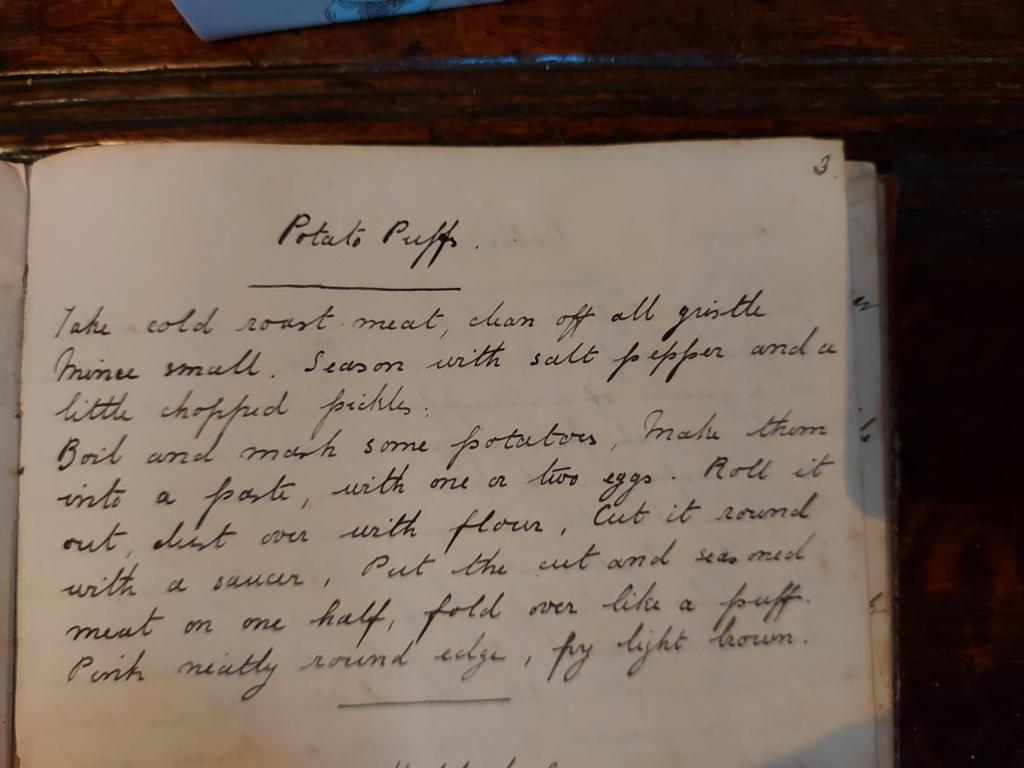 3.
Potato Puffs.
Take cold roast meat, clean off all gristle
Mince small. Season with salt pepper and a
little chopped pickles.
Boil and mash some potatoes, Make them
into a paste, with one or two eggs. Roll it
out, dust over with flour, Cut it round
with a saucer, Put the cut and seasoned
meat on one half, fold over like a puff.
Pink neatly round edge, fry light brown.